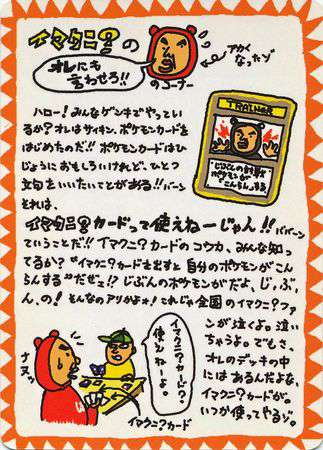 イマクニ?の
オレにも
言わせろ!!
のコーナー
アカく
なったゾ
ハロー!みんなゲンキでやってい
るか?オレはサイキン、ポケモンカードを
はじめたのだ!!ポケモンカードはひ
じょうにおもしろいけれど、ひとつ
文句をいいたいことがある!!バーン
それは、
TRAINER
じぶんの
ポケモンが
こんらんする
イマクニ?カードって使えねーじゃん!!ババーン
ていうことだ!!イマクニ?カードのコウカ、みんな知っ
てるか?“イマクニ?カードを出すと自分のポケモンがこん
らんする”だぜ!!?じぶんのポケモンがだよ、じ、ぶ、
ん、の!そんなのアリかよォ!これじゃ全国のイマクニ?ファ
ンが泣くよ。泣い
ちゃうよ。でもさ、
オレのデッキの中
にはあるんだよな、
イマクニ?カードが。
いつか使ってやるゾ。
ナヌッ
イマクニ?カード?
使えねーよ。
イマクニ?カード